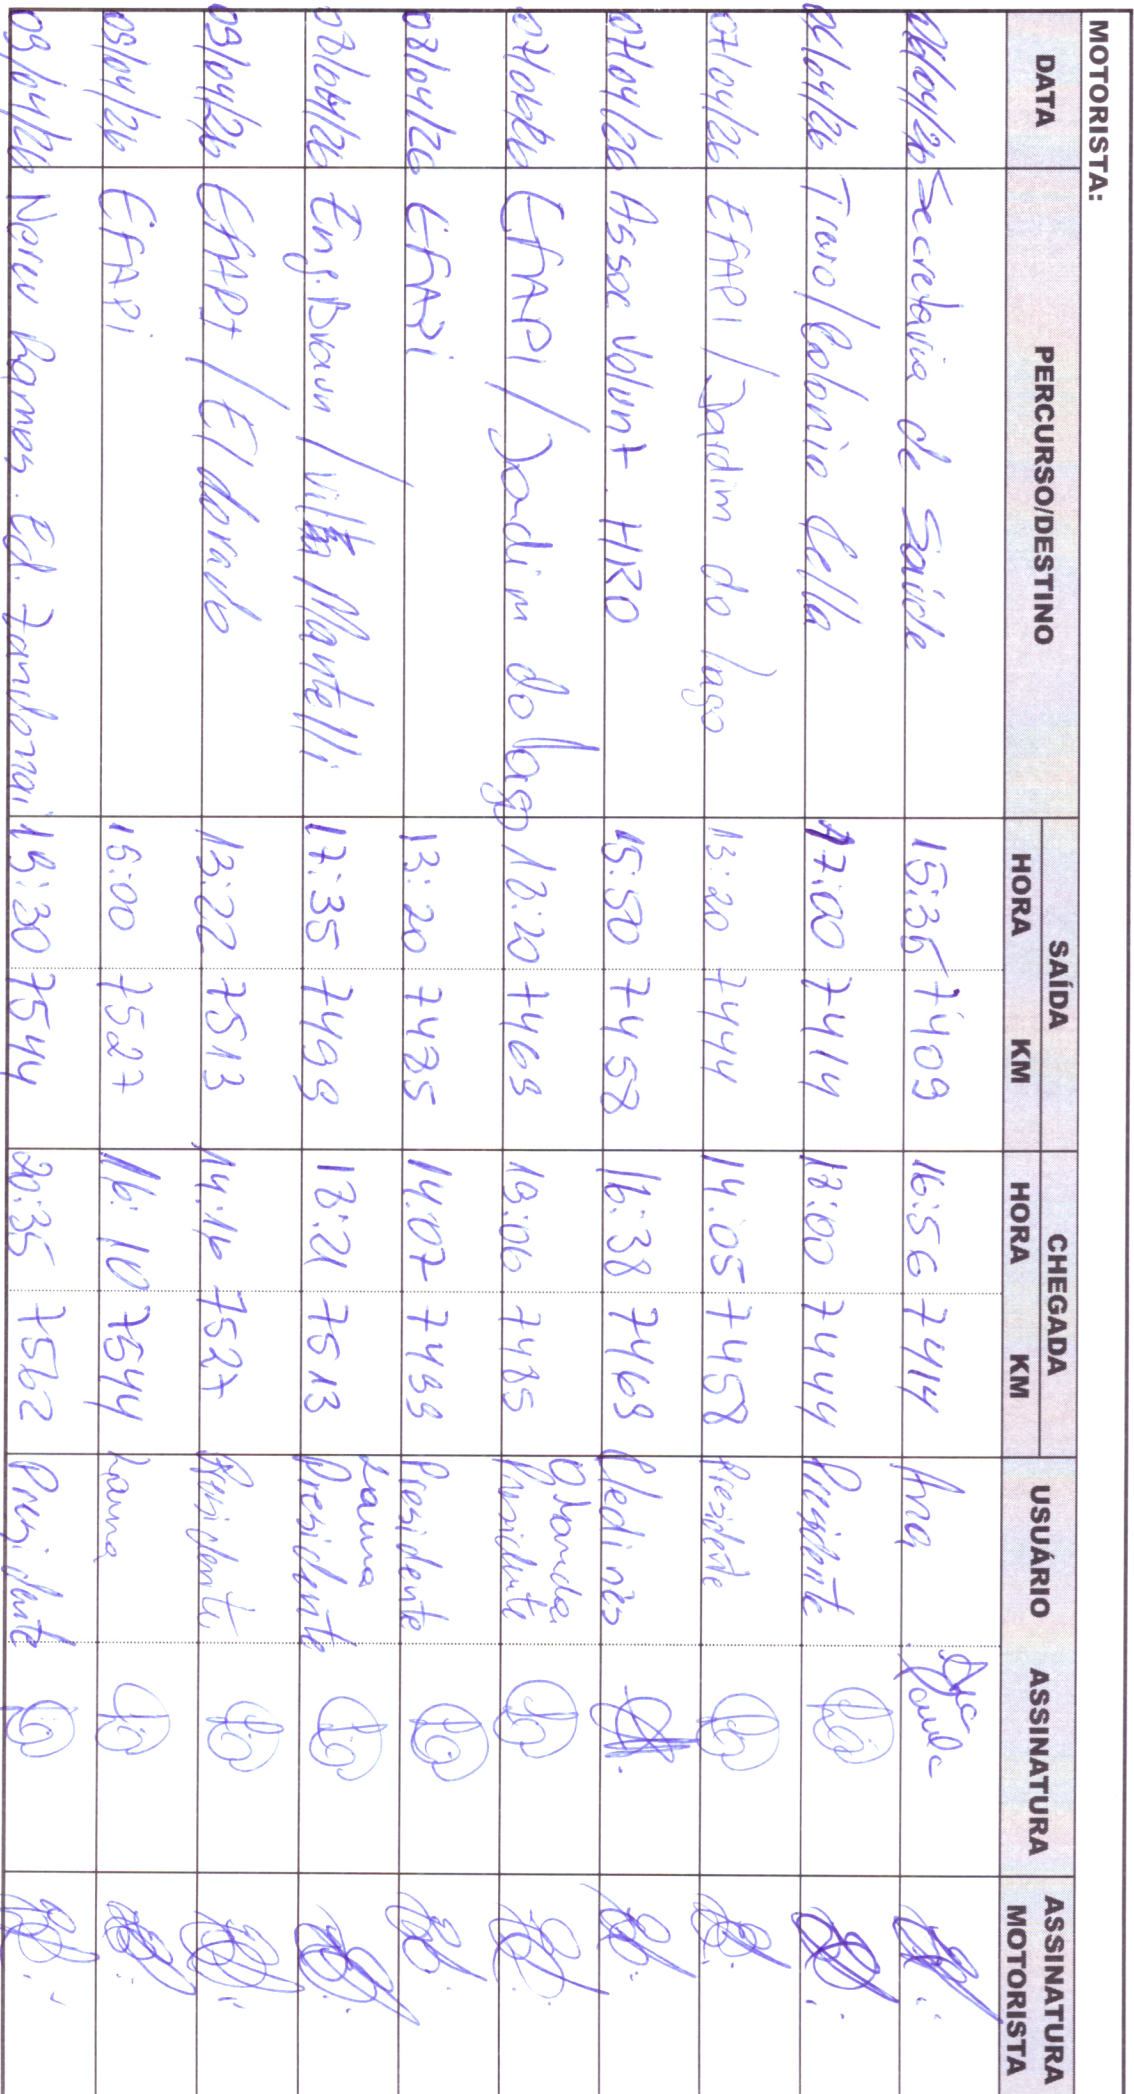 MOTORISTA:
DATA PERCURSO/DESTINO SAÍDA HORA KM CHEGADA HORA KM USUÁRIO ASSINATURA ASSINATURA MOTORISTA
06/04/26 Secretaria de Saúde 15:35 7409 16:56 7414 Ana
06/04/26 Tiaro/Colonia Cella 17:00 7414 18:00 7444 Presidente
07/04/26 EFAPI / Jardim do lago 13:20 7444 14:05 7458 Presidente
07/04/26 Assoc Volunt. HRO 15:50 7458 16:38 7469 Cledinês
07/04/26 EFAPI / Jardim do lago 18:20 7469 19:06 7485 Presidente
08/04/26 EFAPi 13:20 7485 14:07 7499 Presidente
08/04/26 Eng. Braun / Villa Mantelli 17:35 7499 18:21 7513 Launa Presidente
09/04/26 EFAPI / El dorado 13:22 7513 14:16 7527 Presidente
09/04/26 EFAPi 15:00 7527 16:10 7544 Launa
09/04/26 Nereu Ramos. Ed. 19:30 7544 20:35 7562 Presidente